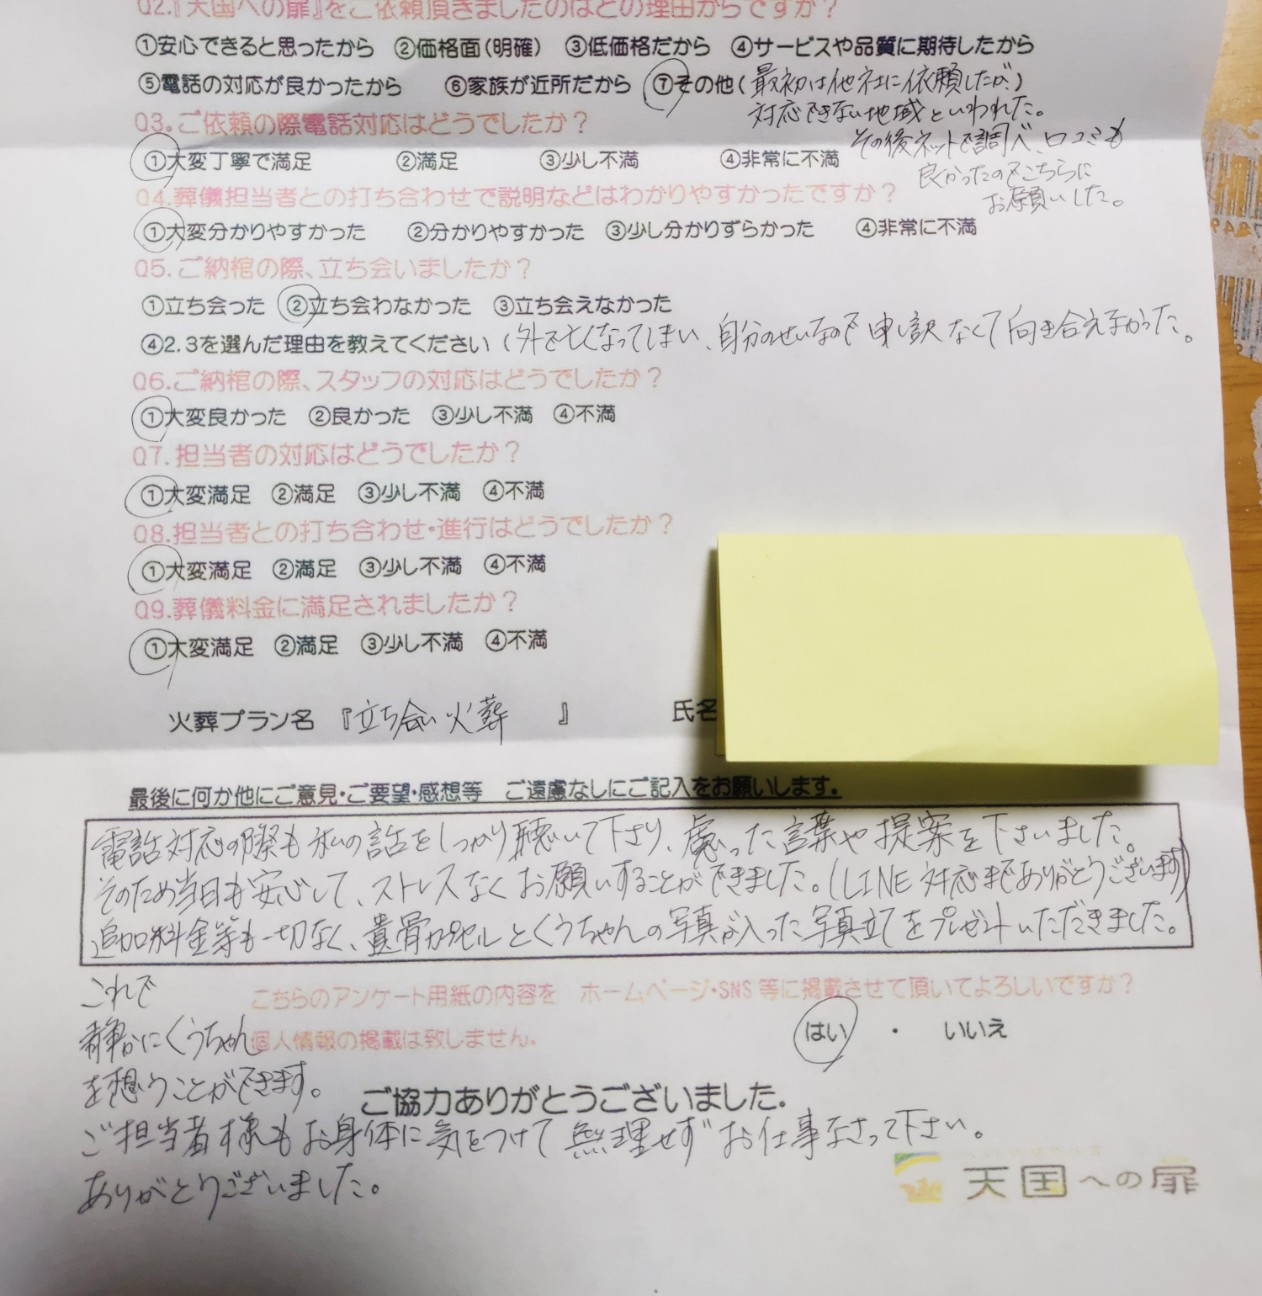 Q2.『天国への扉』をご依頼頂きましたのはどの理由からですか？
①安心できると思ったから ②価格面(明確) ③低価格だから ④サービスや品質に期待したから
⑤電話の対応が良かったから ⑥家族が近所だから ⑦その他(最初は他社に依頼したが)
対応できない地域といわれた。
その後ネットで調べ、口コミも
良かったのでこちらに
お願いした。
Q3.ご依頼の際電話対応はどうでしたか？
①大変丁寧で満足 ②満足 ③少し不満 ④非常に不満
Q4.葬儀担当者との打ち合わせで説明などはわかりやすかったですか？
①大変分かりやすかった ②分かりやすかった ③少し分かりずらかった ④非常に不満
Q5.ご納棺の際、立ち会いましたか？
①立ち会った ②立ち会わなかった ③立ち会えなかった
④2.3を選んだ理由を教えてください(外で亡くなってしまい、自分のせいなので申し訳なくて向き合えなかった。
Q6.ご納棺の際、スタッフの対応はどうでしたか？
①大変良かった ②良かった ③少し不満 ④不満
Q7.担当者の対応はどうでしたか？
①大変満足 ②満足 ③少し不満 ④不満
Q8.担当者との打ち合わせ・進行はどうでしたか？
①大変満足 ②満足 ③少し不満 ④不満
Q9.葬儀料金に満足されましたか？
①大変満足 ②満足 ③少し不満 ④不満
火葬プラン名『立ち会い火葬 』 氏名
最後に何か他にご意見・ご要望・感想等 ご遠慮なしにご記入をお願いします.
電話対応の際も私の話をしっかり聴いて下さり、慮った言葉や提案を下さいました。
そのため当日も安心して、ストレスなくお願いすることができました。(LINE対応までありがとうございます)
追加料金等も一切なく、遺骨カプセルとくうちゃんの写真が入った写真立てをプレゼントいただきました。
これで
静かにくうちゃん
を想うことができます。
ご担当者様もお身体に気をつけて無理せずお仕事なさって下さい。
ありがとうございました。
こちらのアンケート用紙の内容を ホームページ・SNS等に掲載させて頂いてよろしいですか？
個人情報の掲載は致しません。
はい ・ いいえ
ご協力ありがとうございました.
天国への扉